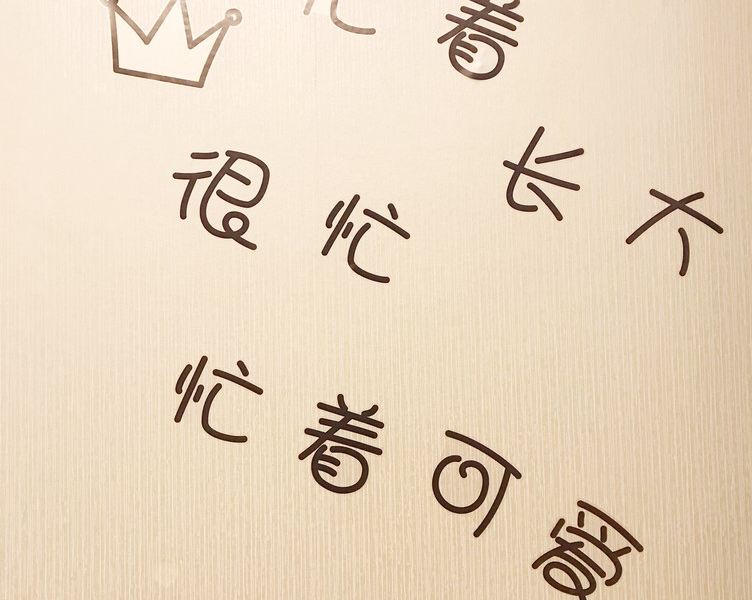 忙着长大
很忙
忙着可爱